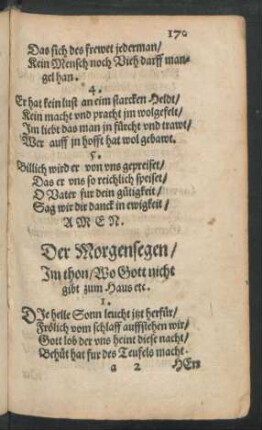 170
Das sich des frewet jederman/
Kein Mensch noch Vieh darff man-
gel han.
4.
Er hat kein lust an eim starcken Heldt/
Kein macht vnd pracht jm wolgefelt/
Im liebt das man jn fürcht vnd trawt/
Wer auff jn hofft hat wol gebawt.
5.
Billich wird er von vns gepreiset/
Das er vns so reichlich speiset/
O Vater fur dein gütigkeit/
Sag wir dir danck in ewigkeit/
AMEN.
Der Morgensegen/
Im thon/Wo Gott nicht
gibt zum Haus etc.
1.
DIe helle Sonn leucht jtzt herfür/
Frölich vom schlaff auffstehen wir/
Gott lob der vns heint diese nacht/
Behüt hat fur des Teufels macht.
a 2 HErr